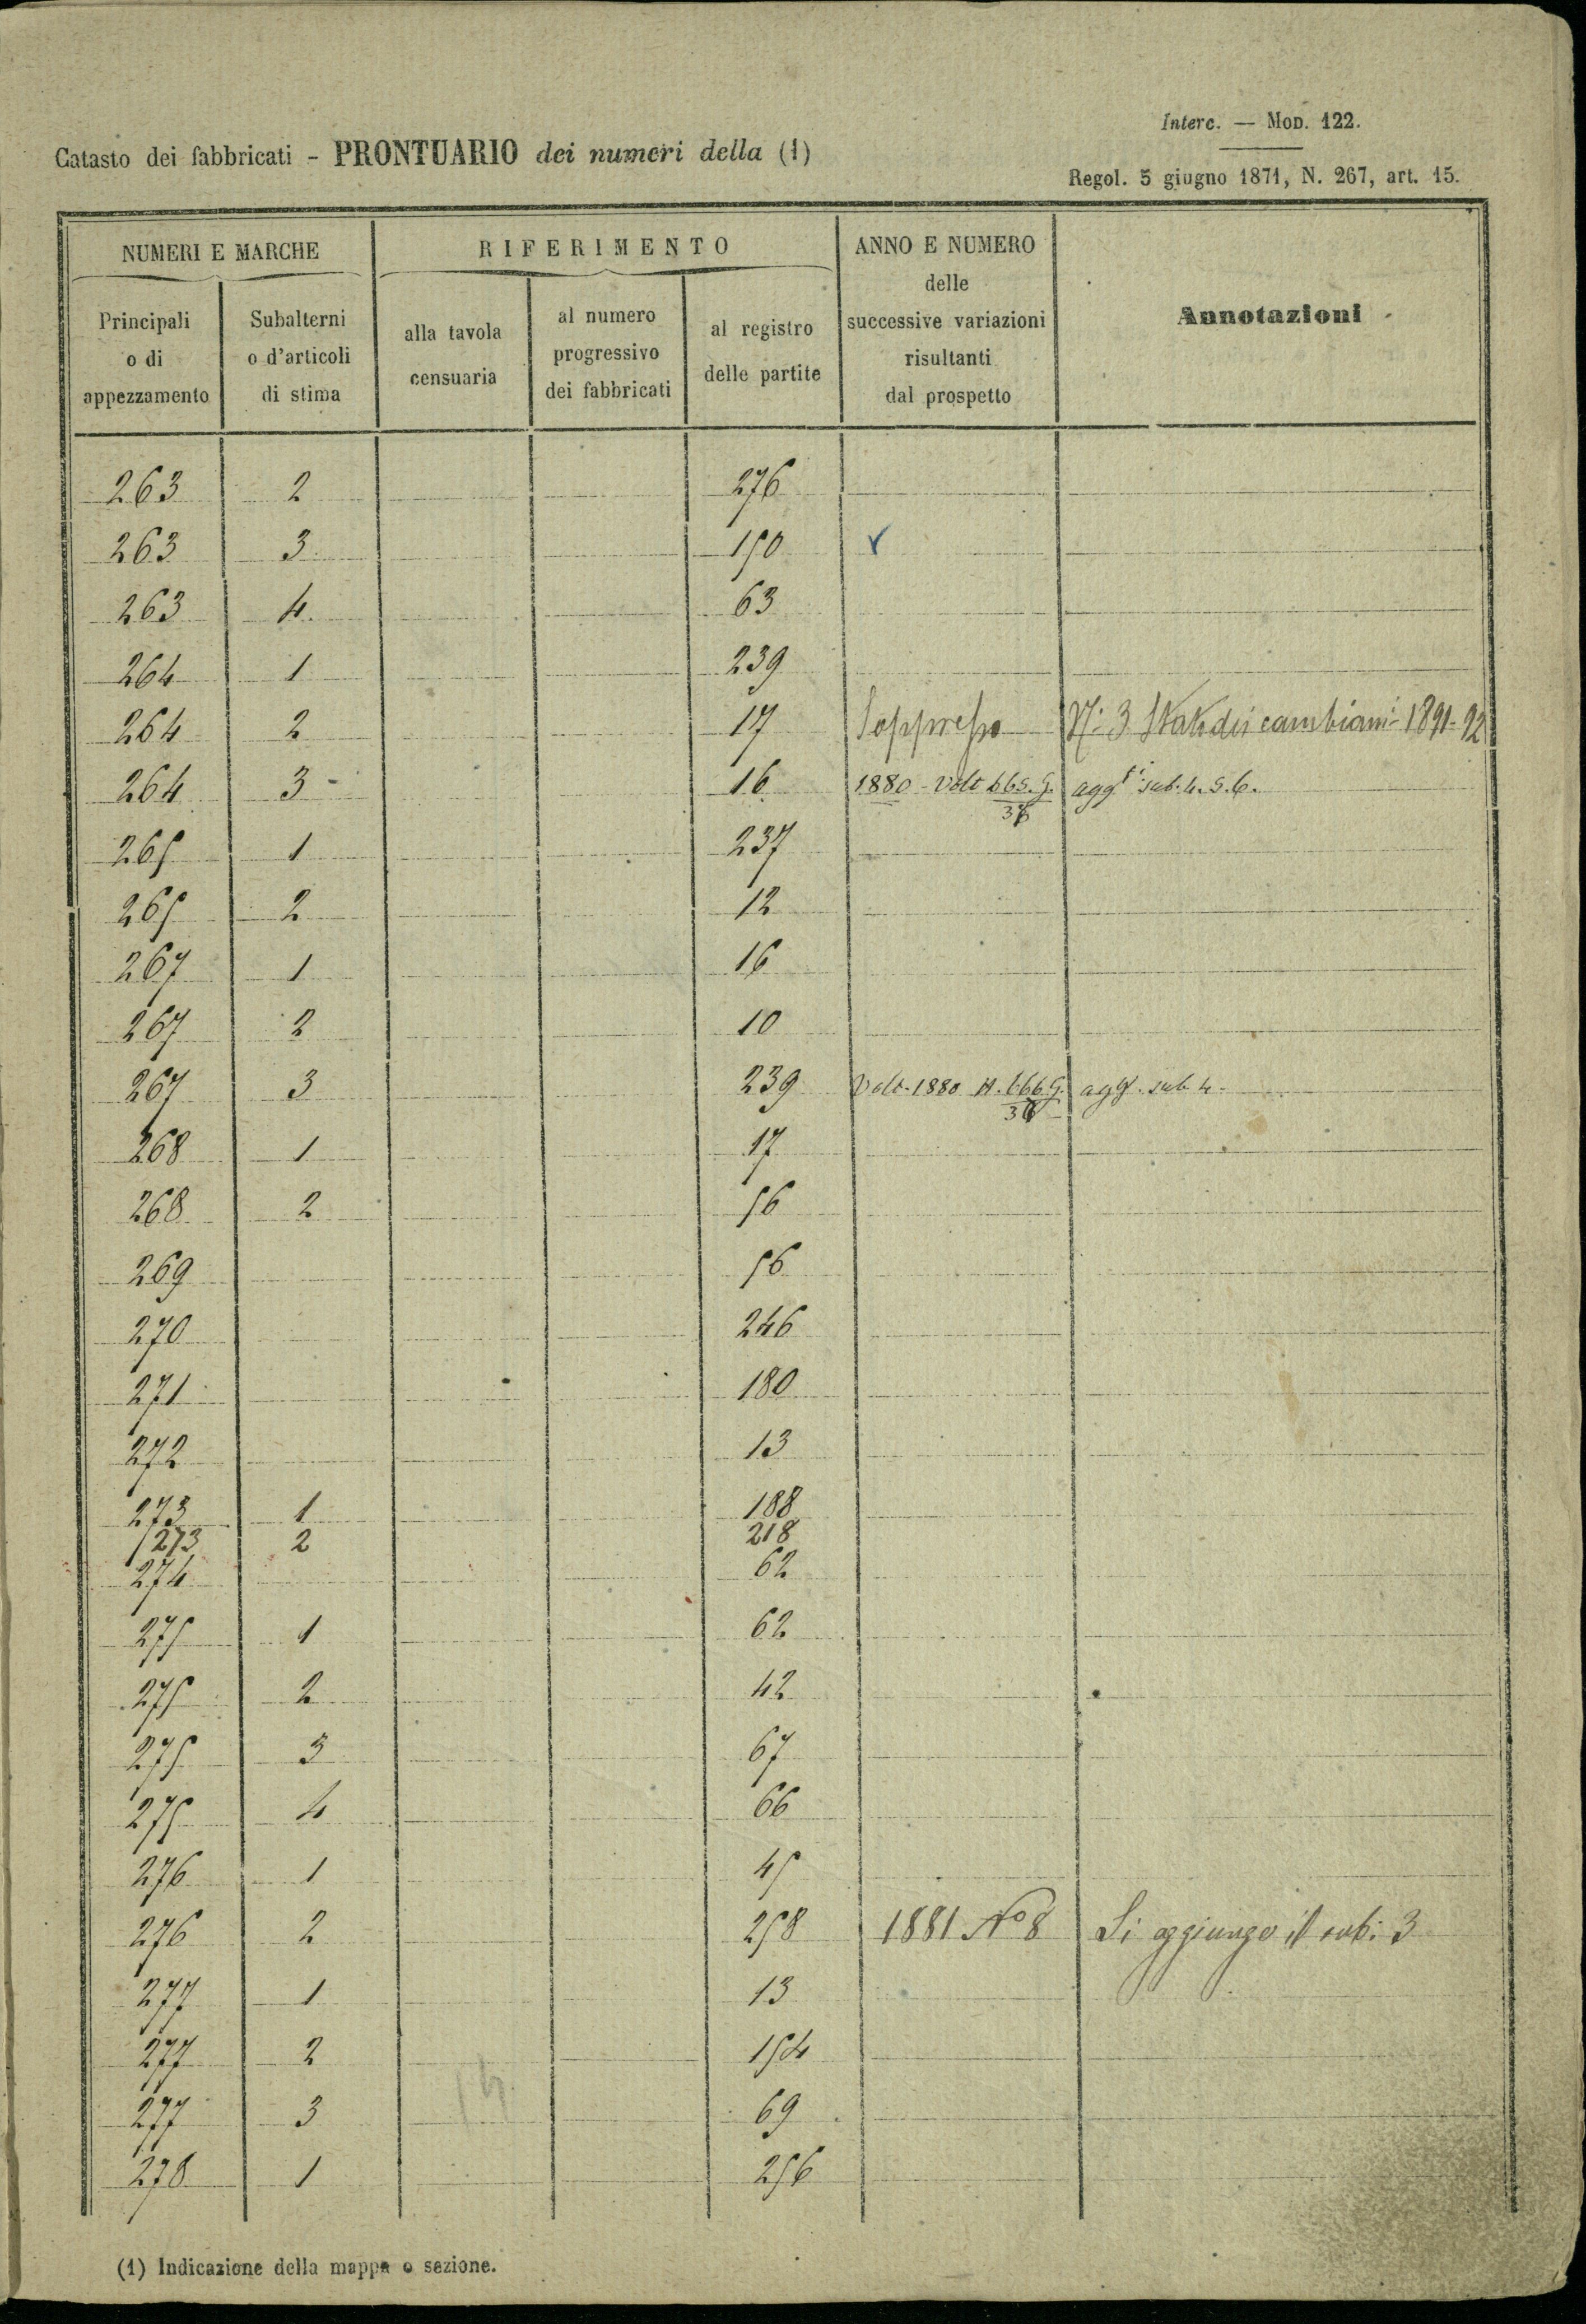 Interc. — Mod. 122.
Catasto dei fabbricati - PRONTUARIO dei numeri della (1)
Regol. 5 giugno 1871, N. 267, art. 15.
NUMERI E MARCHE RIFERIMENTO ANNO E NUMERO delle successive variazioni risultanti dal prospetto Annotazioni
Principali o di appezzamento Subalterni o d'articoli di stima alla tavola censuaria al numero progressivo dei fabbricati al registro delle partite
263 2 276
263 3 150
263 4 63
264 1 239
264 2 17 Soppresso N: 3 Stato dei cambiam. 1891-92
264 3 - 16 1880 - Volt 665. G. agg.ti sub. 4. 5. 6.
265 1 237
265 2 12
267 1 16
267 2 10
267 3 239 Volt. 1880 N. 666 G. agg. sub 4.
268 1 17
268 2 56
269 56
270 246
271 180
272 13
273 1 188
273 2 218
274 62
275 1 62
275 2 42
275 3 67
275 4 66
276 1 45
276 2 258 1881 No 8 Si aggiunge il sub: 3
277 1 13
277 2 154
277 3 69
278 1 256
(1) Indicazione della mappa o sezione.